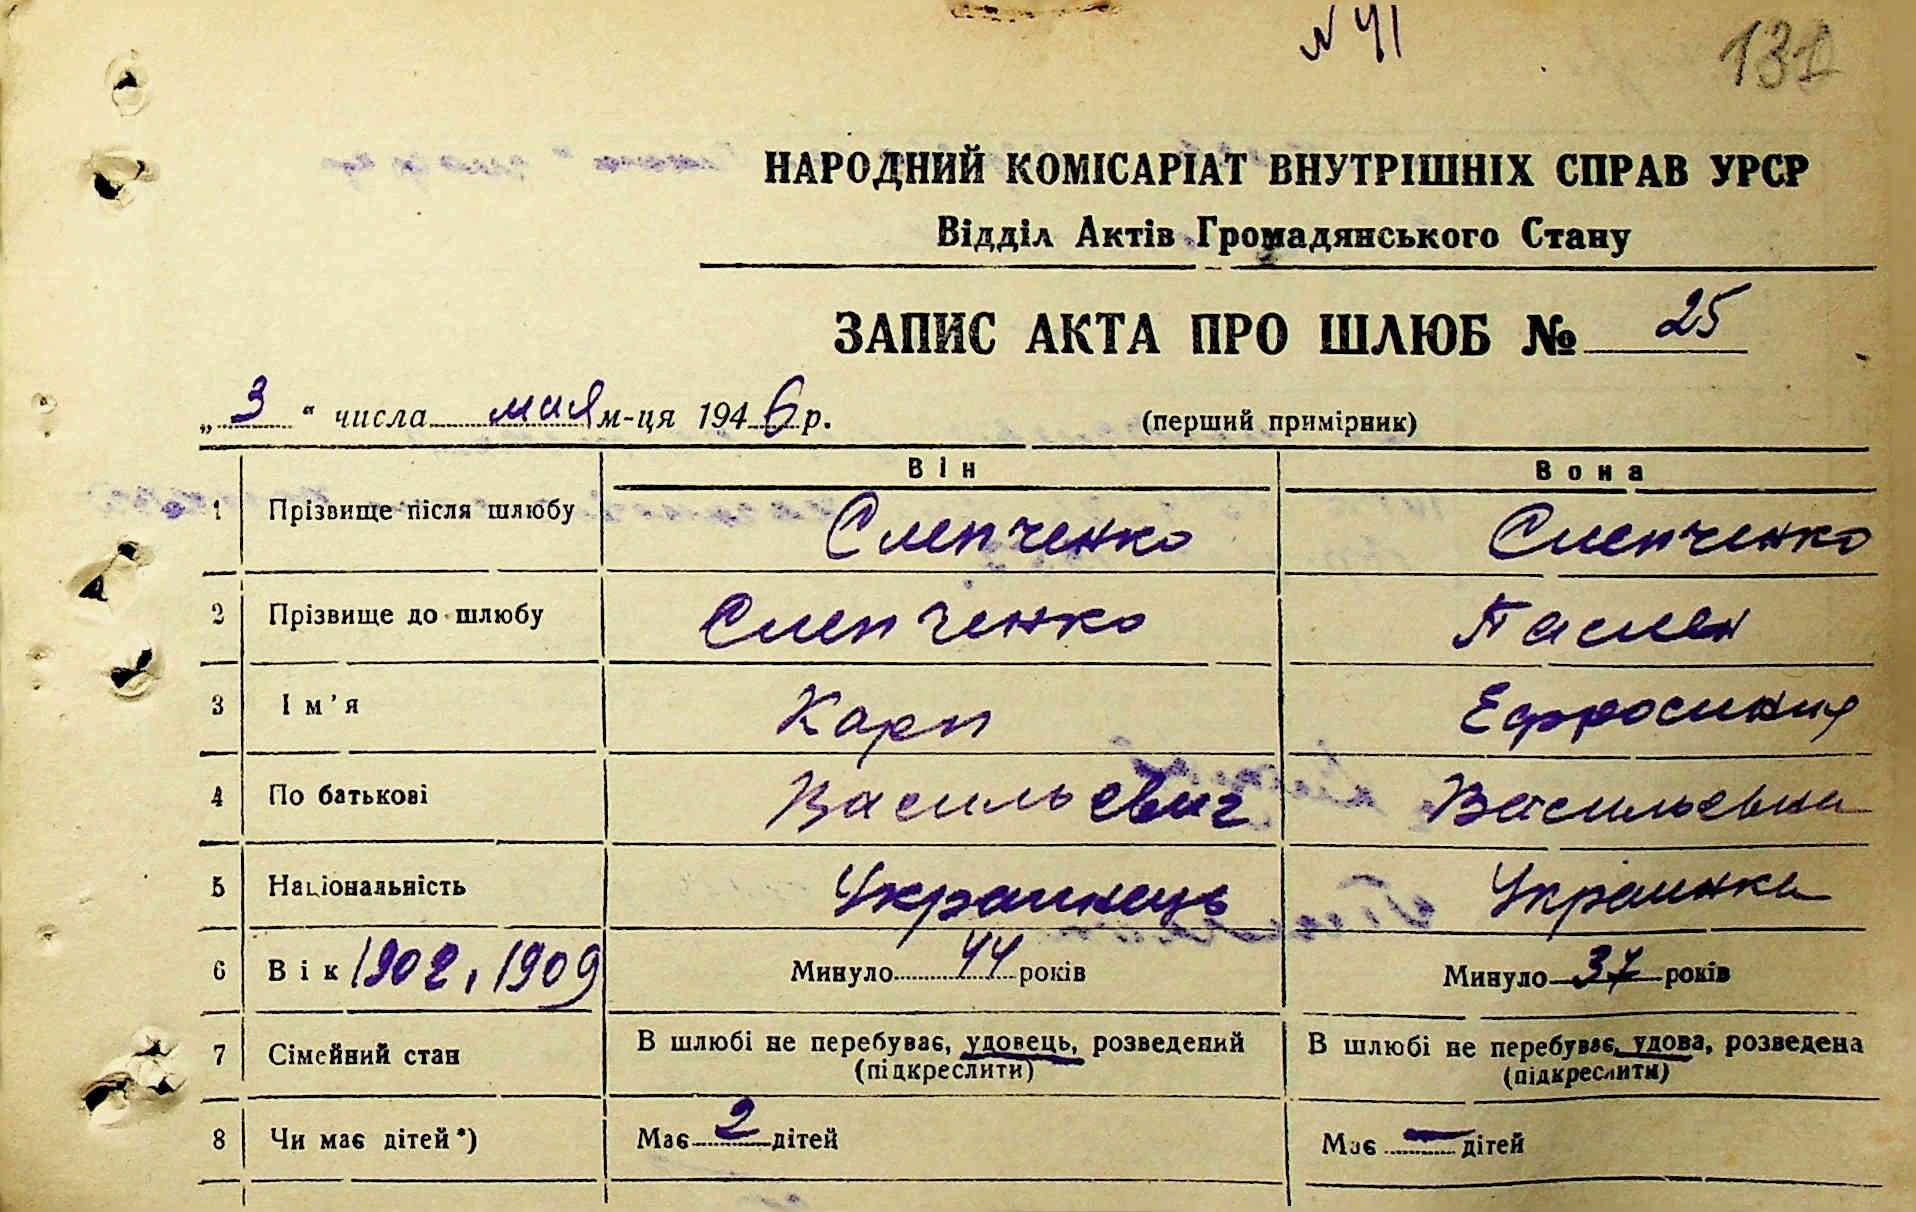 № 41
131
НАРОДНИЙ КОМІСАРІАТ ВНУТРІШНІХ СПРАВ УРСР
Відділ Актів Громадянського Стану
ЗАПИС АКТА ПРО ШЛЮБ № 25
„ 3 “ числа мая м-ця 1946 р. (перший примірник)
Він Вона
1 Прізвище після шлюбу Слепченко Слепченко
2 Прізвище до шлюбу Слепченко Паслен
3 Ім'я Карп Ефросиния
4 По батькові Васильевич Васильевна
5 Національність Украинець Украинка
6 Вік 1902, 1909 Минуло 44 років Минуло 37 років
7 Сімейний стан В шлюбі не перебуває, удовець, розведений В шлюбі не перебуває, удова, розведена
(підкреслити) (підкреслити)
8 Чи має дітей *) Має 2 дітей Має — дітей